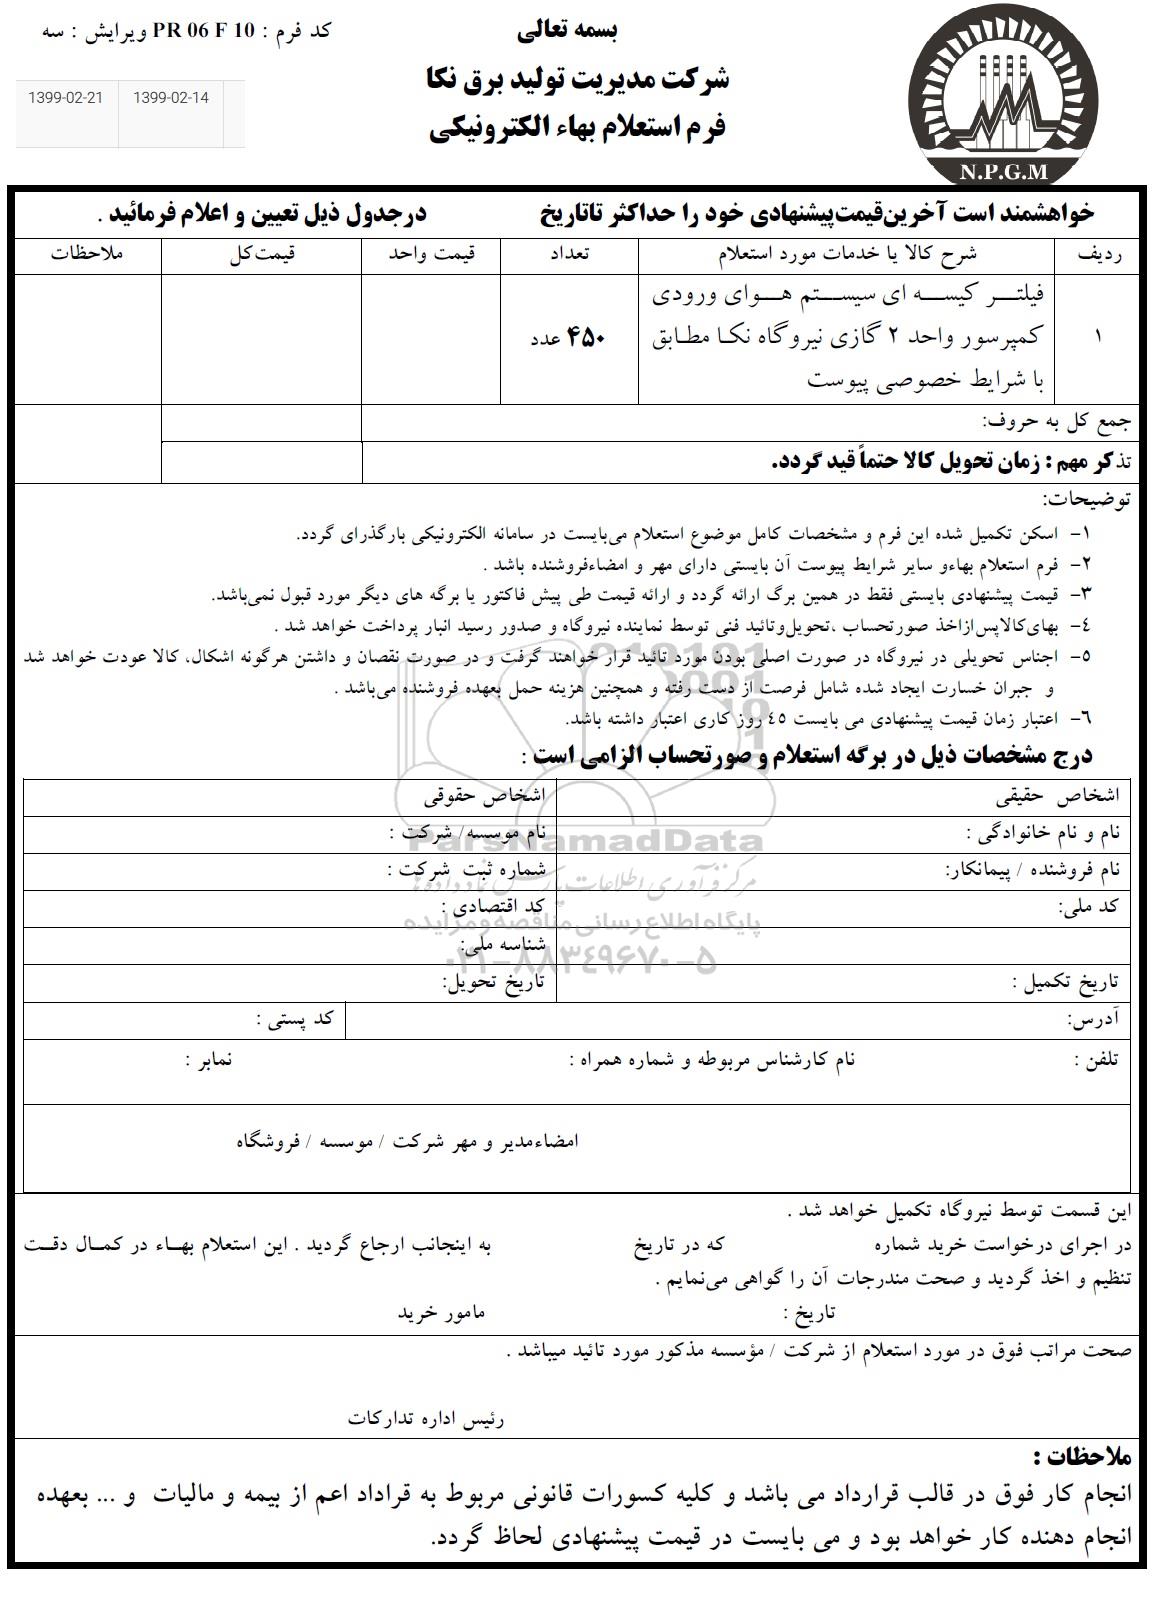 بسمه تعالی
کد فرم : PR 06 F 10 ویرایش : سه
شرکت مدیریت تولید برق نکا
فرم استعلام بهاء الکترونیکی
1399-02-21 1399-02-14
N.P.G.M
خواهشمند است آخرین‌قیمت‌پیشنهادی خود را حداکثر تاتاریخ درجدول ذیل تعیین و اعلام فرمائید .
ردیف شرح کالا یا خدمات مورد استعلام تعداد قیمت واحد قیمت‌کل ملاحظات
فیلتر کیسه ای سیستم هوای ورودی
۱ کمپرسور واحد ۲ گازی نیروگاه نکا مطابق ۴۵۰ عدد
با شرایط خصوصی پیوست
جمع کل به حروف:
تذکر مهم : زمان تحویل کالا حتماً قید گردد.
توضیحات:
۱- اسکن تکمیل شده این فرم و مشخصات کامل موضوع استعلام می‌بایست در سامانه الکترونیکی بارگذرای گردد.
۲- فرم استعلام بهاءو سایر شرایط پیوست آن بایستی دارای مهر و امضاءفروشنده باشد .
۳- قیمت پیشنهادی بایستی فقط در همین برگ ارائه گردد و ارائه قیمت طی پیش فاکتور یا برگه های دیگر مورد قبول نمی‌باشد.
٤- بهای‌کالاپس‌ازاخذ صورتحساب ،تحویل‌وتائید فنی توسط نماینده نیروگاه و صدور رسید انبار پرداخت خواهد شد .
٥- اجناس تحویلی در نیروگاه در صورت اصلی بودن مورد تائید قرار خواهند گرفت و در صورت نقصان و داشتن هرگونه اشکال، کالا عودت خواهد شد
و جبران خسارت ایجاد شده شامل فرصت از دست رفته و همچنین هزینه حمل بعهده فروشنده می‌باشد .
٦- اعتبار زمان قیمت پیشنهادی می بایست ٤٥ روز کاری اعتبار داشته باشد.
درج مشخصات ذیل در برگه استعلام و صورتحساب الزامی است :
اشخاص حقیقی اشخاص حقوقی
نام و نام خانوادگی : نام موسسه/ شرکت :
ParsNamadData
نام فروشنده / پیمانکار: شماره ثبت شرکت :
مرکز فرآوری اطلاعات پارس نماد داده ها
کد ملی: کد اقتصادی :
پایگاه اطلاع رسانی مناقصه و مزایده
شناسه ملی:
۰۲۱-۸۸۳٤۹٦۷۰-۵
تاریخ تکمیل : تاریخ تحویل:
آدرس: کد پستی :
تلفن : نام کارشناس مربوطه و شماره همراه : نمابر :
امضاءمدیر و مهر شرکت / موسسه / فروشگاه
این قسمت توسط نیروگاه تکمیل خواهد شد .
در اجرای درخواست خرید شماره که در تاریخ به اینجانب ارجاع گردید . این استعلام بهاء در کمال دقت
تنظیم و اخذ گردید و صحت مندرجات آن را گواهی می‌نمایم .
تاریخ : مامور خرید
صحت مراتب فوق در مورد استعلام از شرکت / مؤسسه مذکور مورد تائید میباشد .
رئیس اداره تدارکات
ملاحظات :
انجام کار فوق در قالب قرارداد می باشد و کلیه کسورات قانونی مربوط به قراداد اعم از بیمه و مالیات و ... بعهده
انجام دهنده کار خواهد بود و می بایست در قیمت پیشنهادی لحاظ گردد.